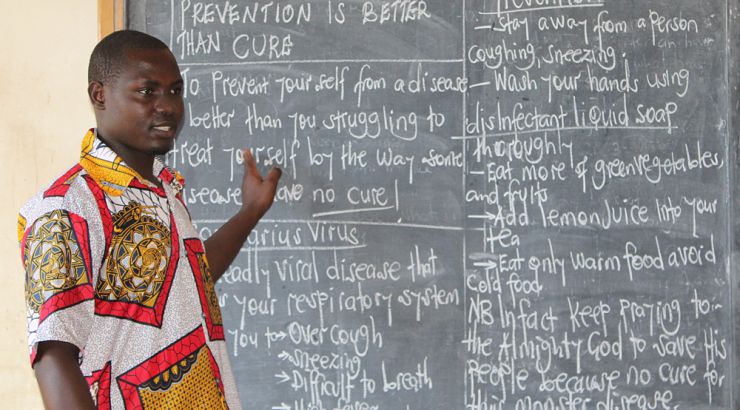 PREVENTION IS BETTER
THAN CURE
To Prevent your self from a disease
better than you struggling to
treat your self by the way some
disease have no cure!
Virus.
deadly viral disease that
your respiratory system
you to → Over Cough
→ Sneezing
→ Difficult to breath
Prevention:
- Stay away from a person
coughing, sneezing,
- Wash your hands using
disinfectant liquid soap
thoroughly
- Eat more of green vegetables,
and fruits
→ Add lemon Juice Into your
tea
→ Eat only warm food avoid
cold food
NB Infact keep praying to:-
the Almighty God to save His
People because no cure for
this monster disease